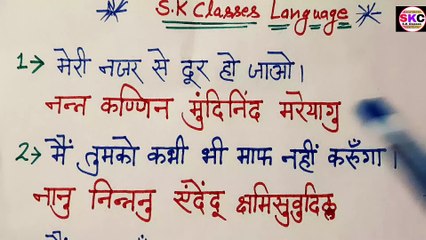 S.K Classes Language
SKC
1→ मेरी नजर से दूर हो जाओ।
नन्त कण्णिन मुंदिनिंद मरेयागु
2→ मैं तुमको कभी भी माफ नहीं करूँगा।
नानु निन्तनु संदेंदू क्षमिसुवुदिल्ल